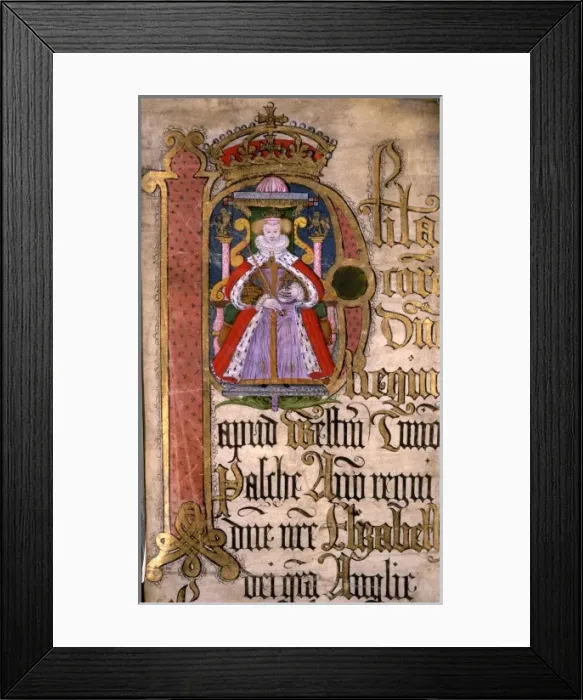 Plita
cor
Dn
Regin
apud Westm Tmino
Pasche Anno regni
dne nre Elizabeth
dei gra Anglie